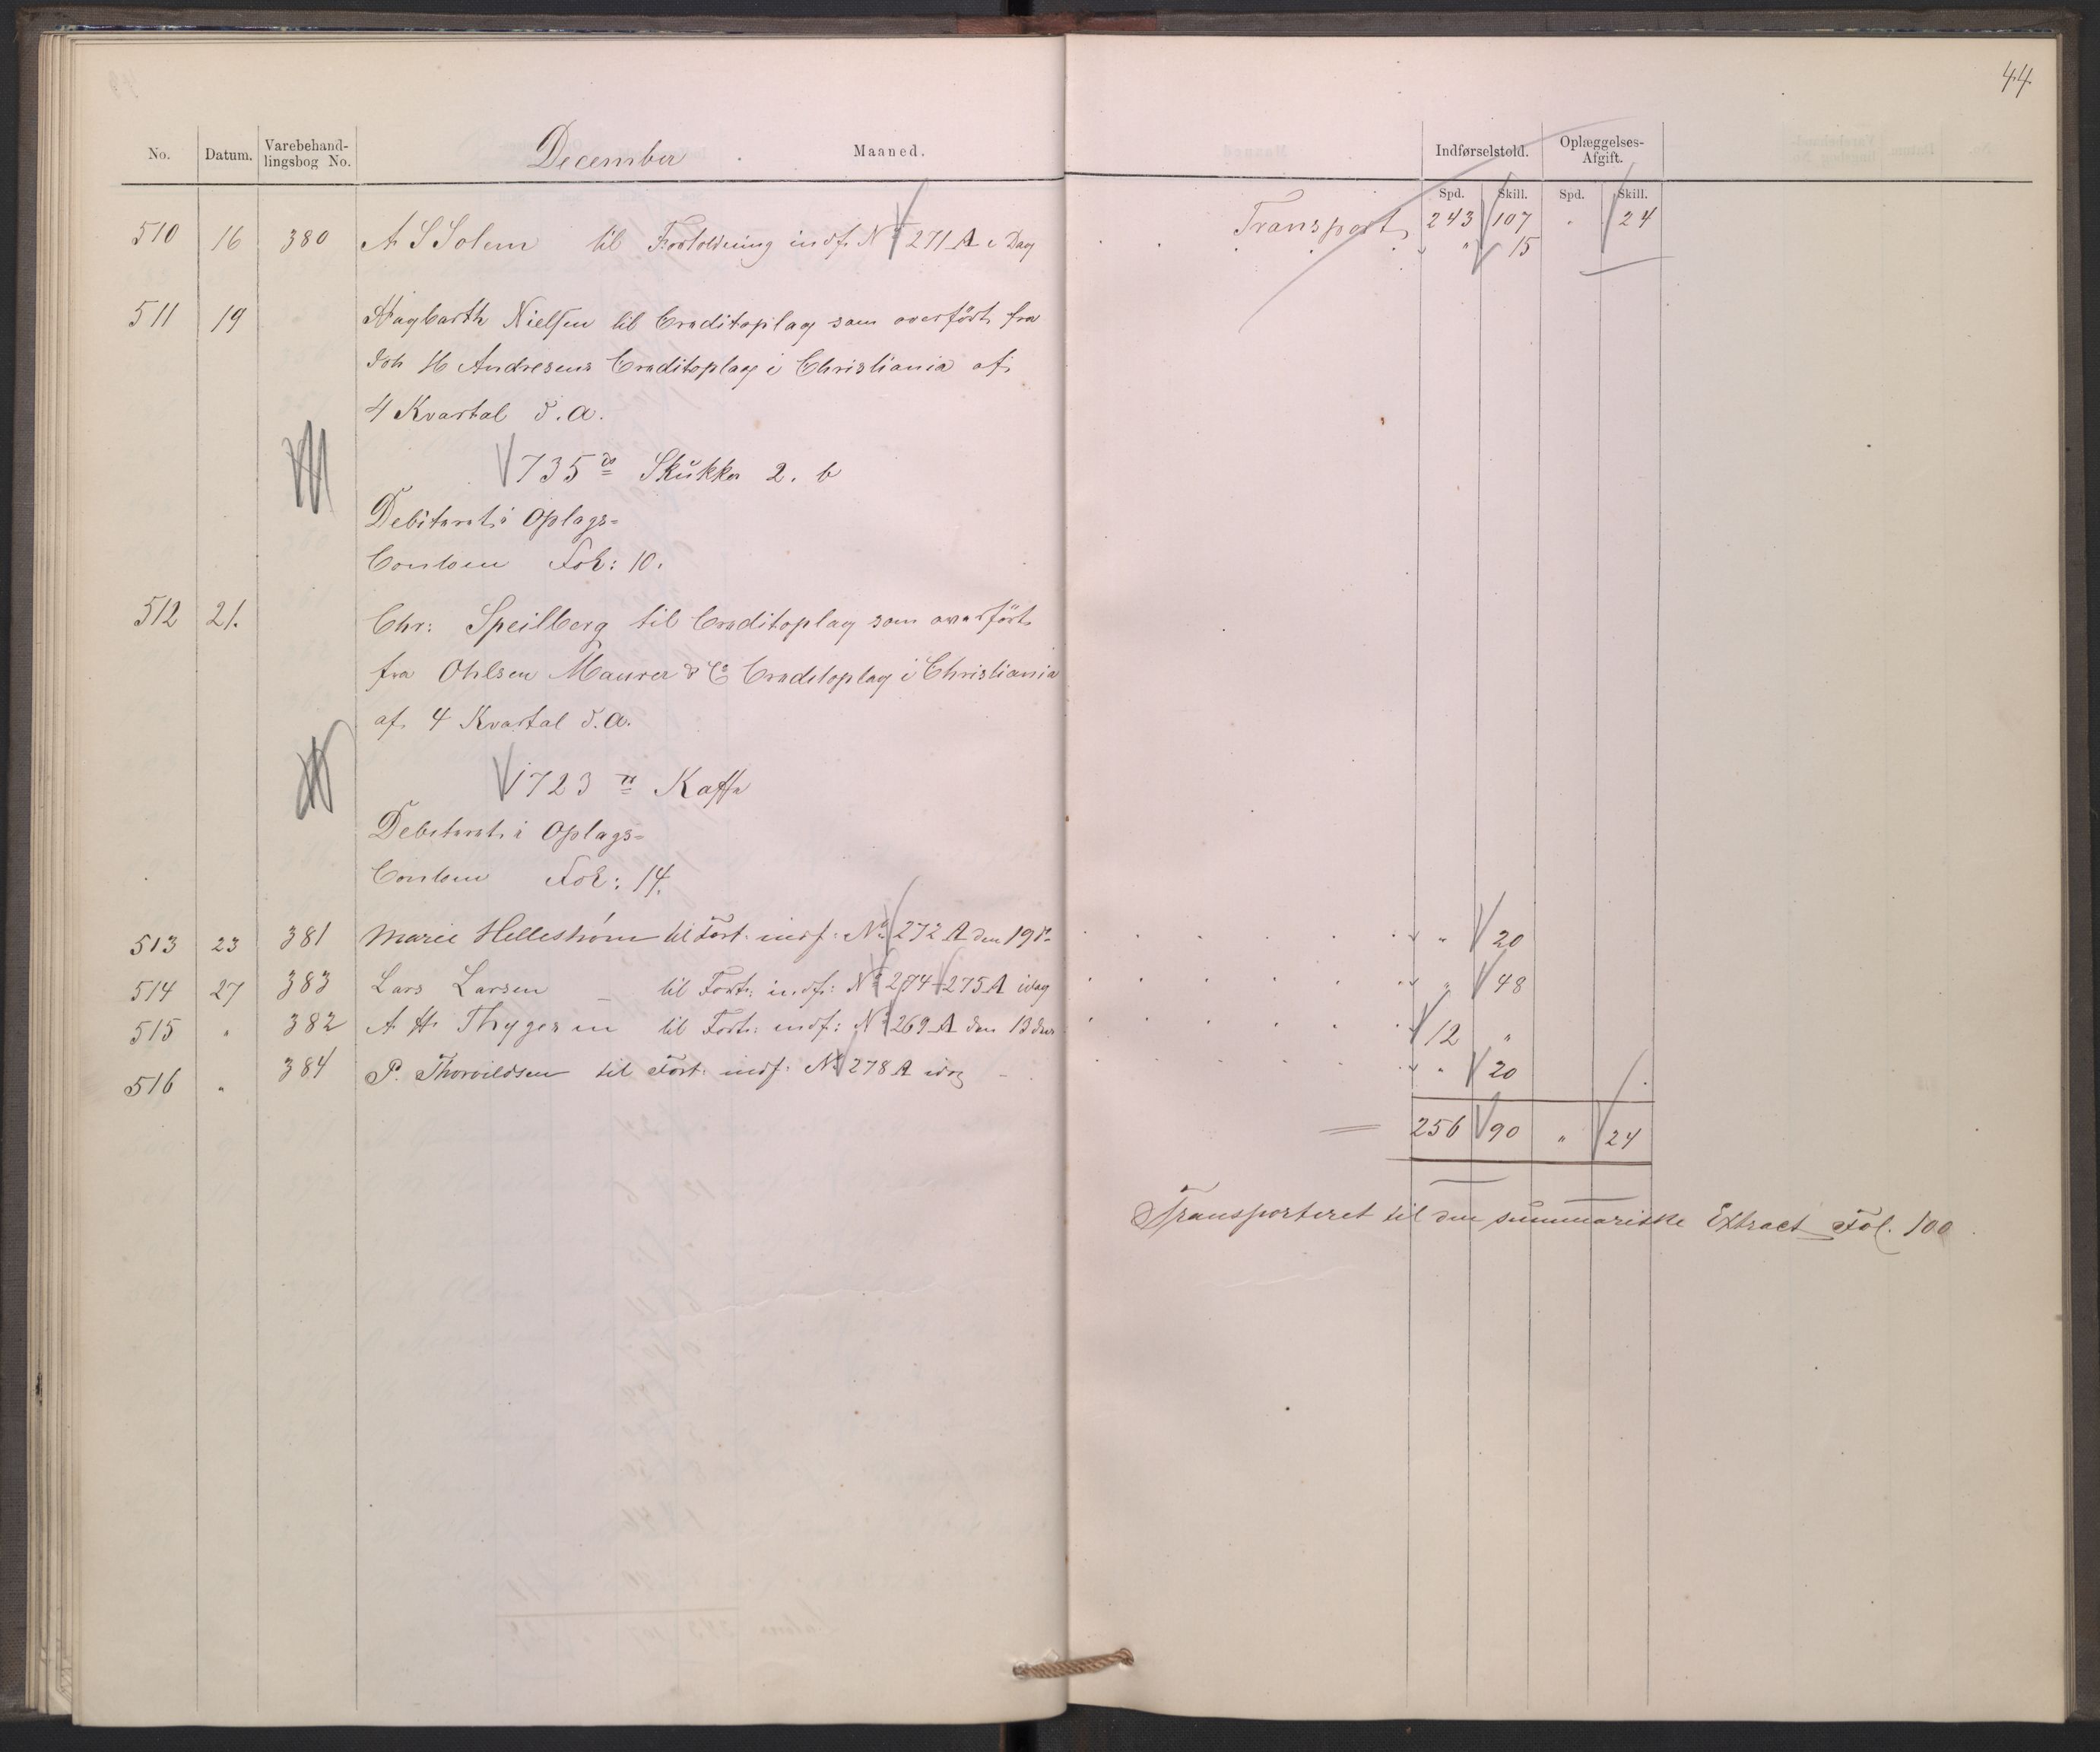 44
No. Datum. Varebehand-lingsbog No. December Maaned. Indførselstold. Oplæggelses-Afgift.
Spd. Skill. Spd. Skill.
Transport 243 107 " 24
510 16 380 A S Solem til Fortoldning indf. No 271 A i Dag " 15
511 19 Hagbarth Nielsen til Creditoplag som overført fra
Joh H Andresens Creditoplag i Christiania af
4 Kvartal d.A.
735 Sukker 2. b
Debiteret i Oplags=
Contoen Fol: 10.
512 21. Chr: Speilberg til Creditoplag som overført
fra Ohlsen Maurer & Co Creditoplag i Christiania
af 4 Kvartal d.A.
1723 Kaffe
Debiteret i Oplags=
Contoen Fol: 14.
513 23 381 Marie Hellestrøm til Fort: indf: No 272 A den 19 ds " 20
514 27 383 Lars Larsen til Fort: indf: No 274 - 275 A idag " 48
515 " 382 A H Thygesen til Fort: indf: No 269 A den 13 ds 12 "
516 " 384 P. Thorvildsen til Fort: indf: No 278 A idag " 20
256 90 " 24
Transporteret til den summariske Extract Fol. 100